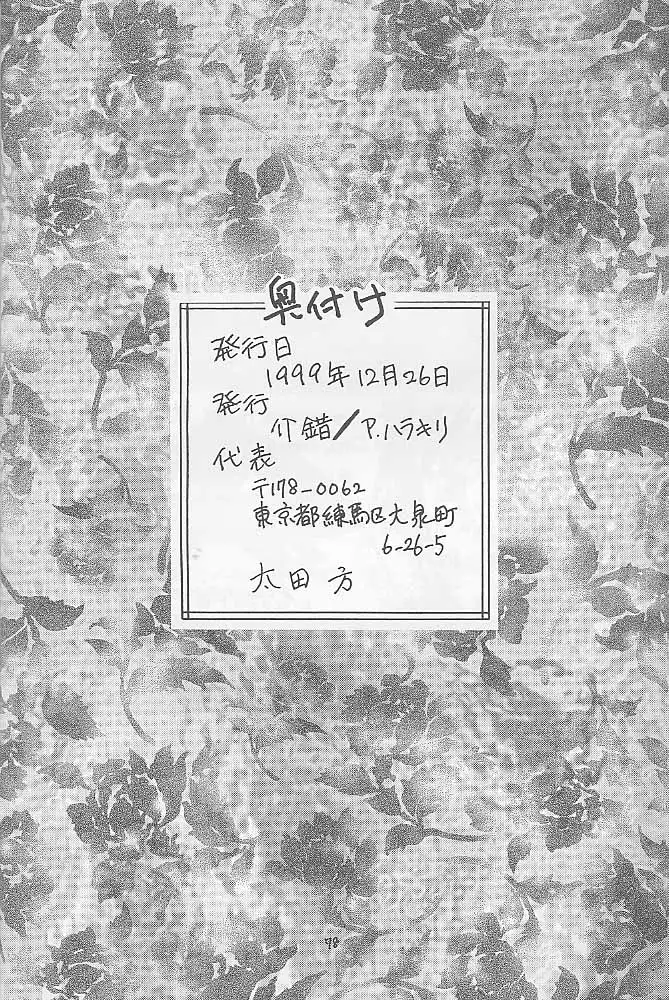 奥付け
発行日
1999年12月26日
発行
介錯/P.ハラキリ
代表
〒178-0062
東京都練馬区大泉町
6-26-5
太田方
78